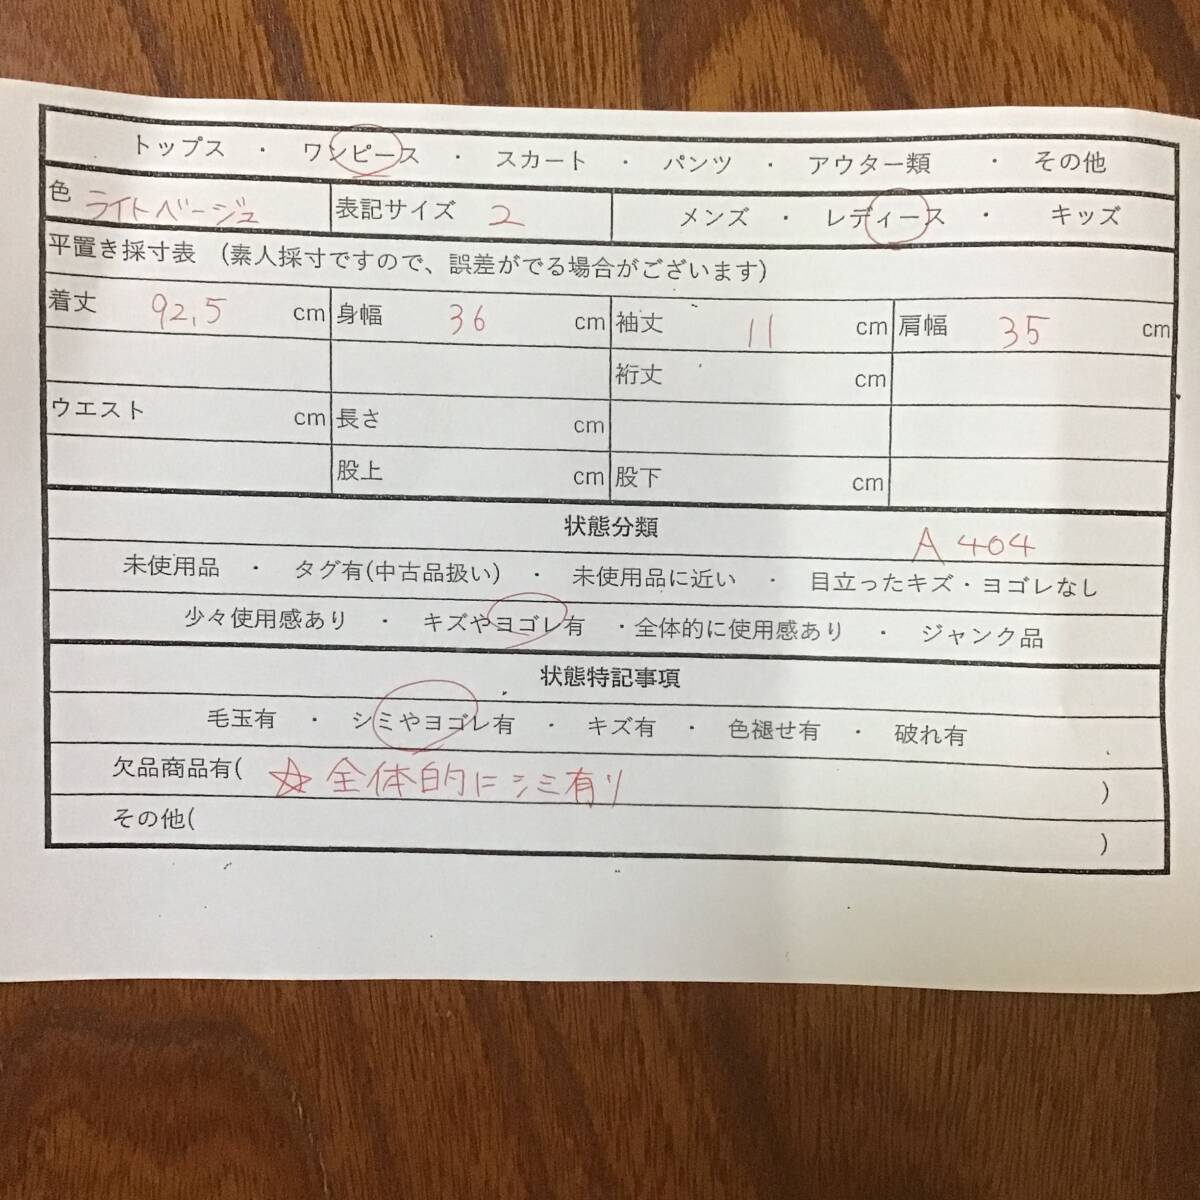 トップス ・ ワンピース ・ スカート ・ パンツ ・ アウター類 ・ その他
色 ライトベージュ 表記サイズ 2 メンズ ・ レディース ・ キッズ
平置き採寸表 (素人採寸ですので、誤差がでる場合がございます)
着丈 92.5 cm 身幅 36 cm 袖丈 11 cm 肩幅 35 cm
裄丈 cm
ウエスト cm 長さ cm
股上 cm 股下 cm
状態分類 A 404
未使用品 ・ タグ有(中古品扱い) ・ 未使用品に近い ・ 目立ったキズ・ヨゴレなし
少々使用感あり ・ キズやヨゴレ有 ・全体的に使用感あり ・ ジャンク品
状態特記事項
毛玉有 ・ シミやヨゴレ有 ・ キズ有 ・ 色褪せ有 ・ 破れ有
欠品商品有( ☆全体的にシミ有り )
その他( )